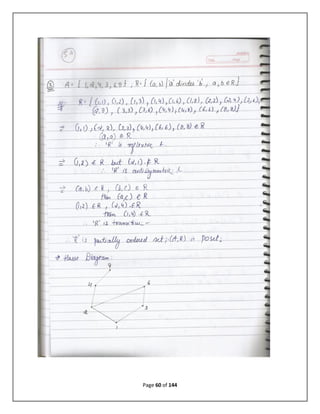 A = { 1, 2, 4, 3, 6, 8 } , R = { (a, b) | 'a' divides 'b' , a, b ∈ R }
R = { (1,1), (1,2), (1,3), (1,4), (1,6), (1,8), (2,2), (2,4), (2,6),
(2,8) , (3,3), (3,6), (4,4), (4,8), (6,6), (8,8) }
⇒ (1,1), (2,2), (3,3), (4,4), (6,6), (8,8) ∈ R
(a,a) ∈ R
∴ 'R' is reflexive
⇒ (1,2) ∈ R but (2,1) ∉ R
∴ 'R' is antisymmetric
⇒ (a,b) ∈ R , (b,c) ∈ R
then (a,c) ∈ R
(1,2) ∈ R , (2,4) ∈ R
then (1,4) ∈ R
∴ 'R' is transitive
∴ 'R' is partially ordered set; (A,R) is Poset.
→ Hasse Diagram
8
4 6
2 3
1
Page 60 of 144